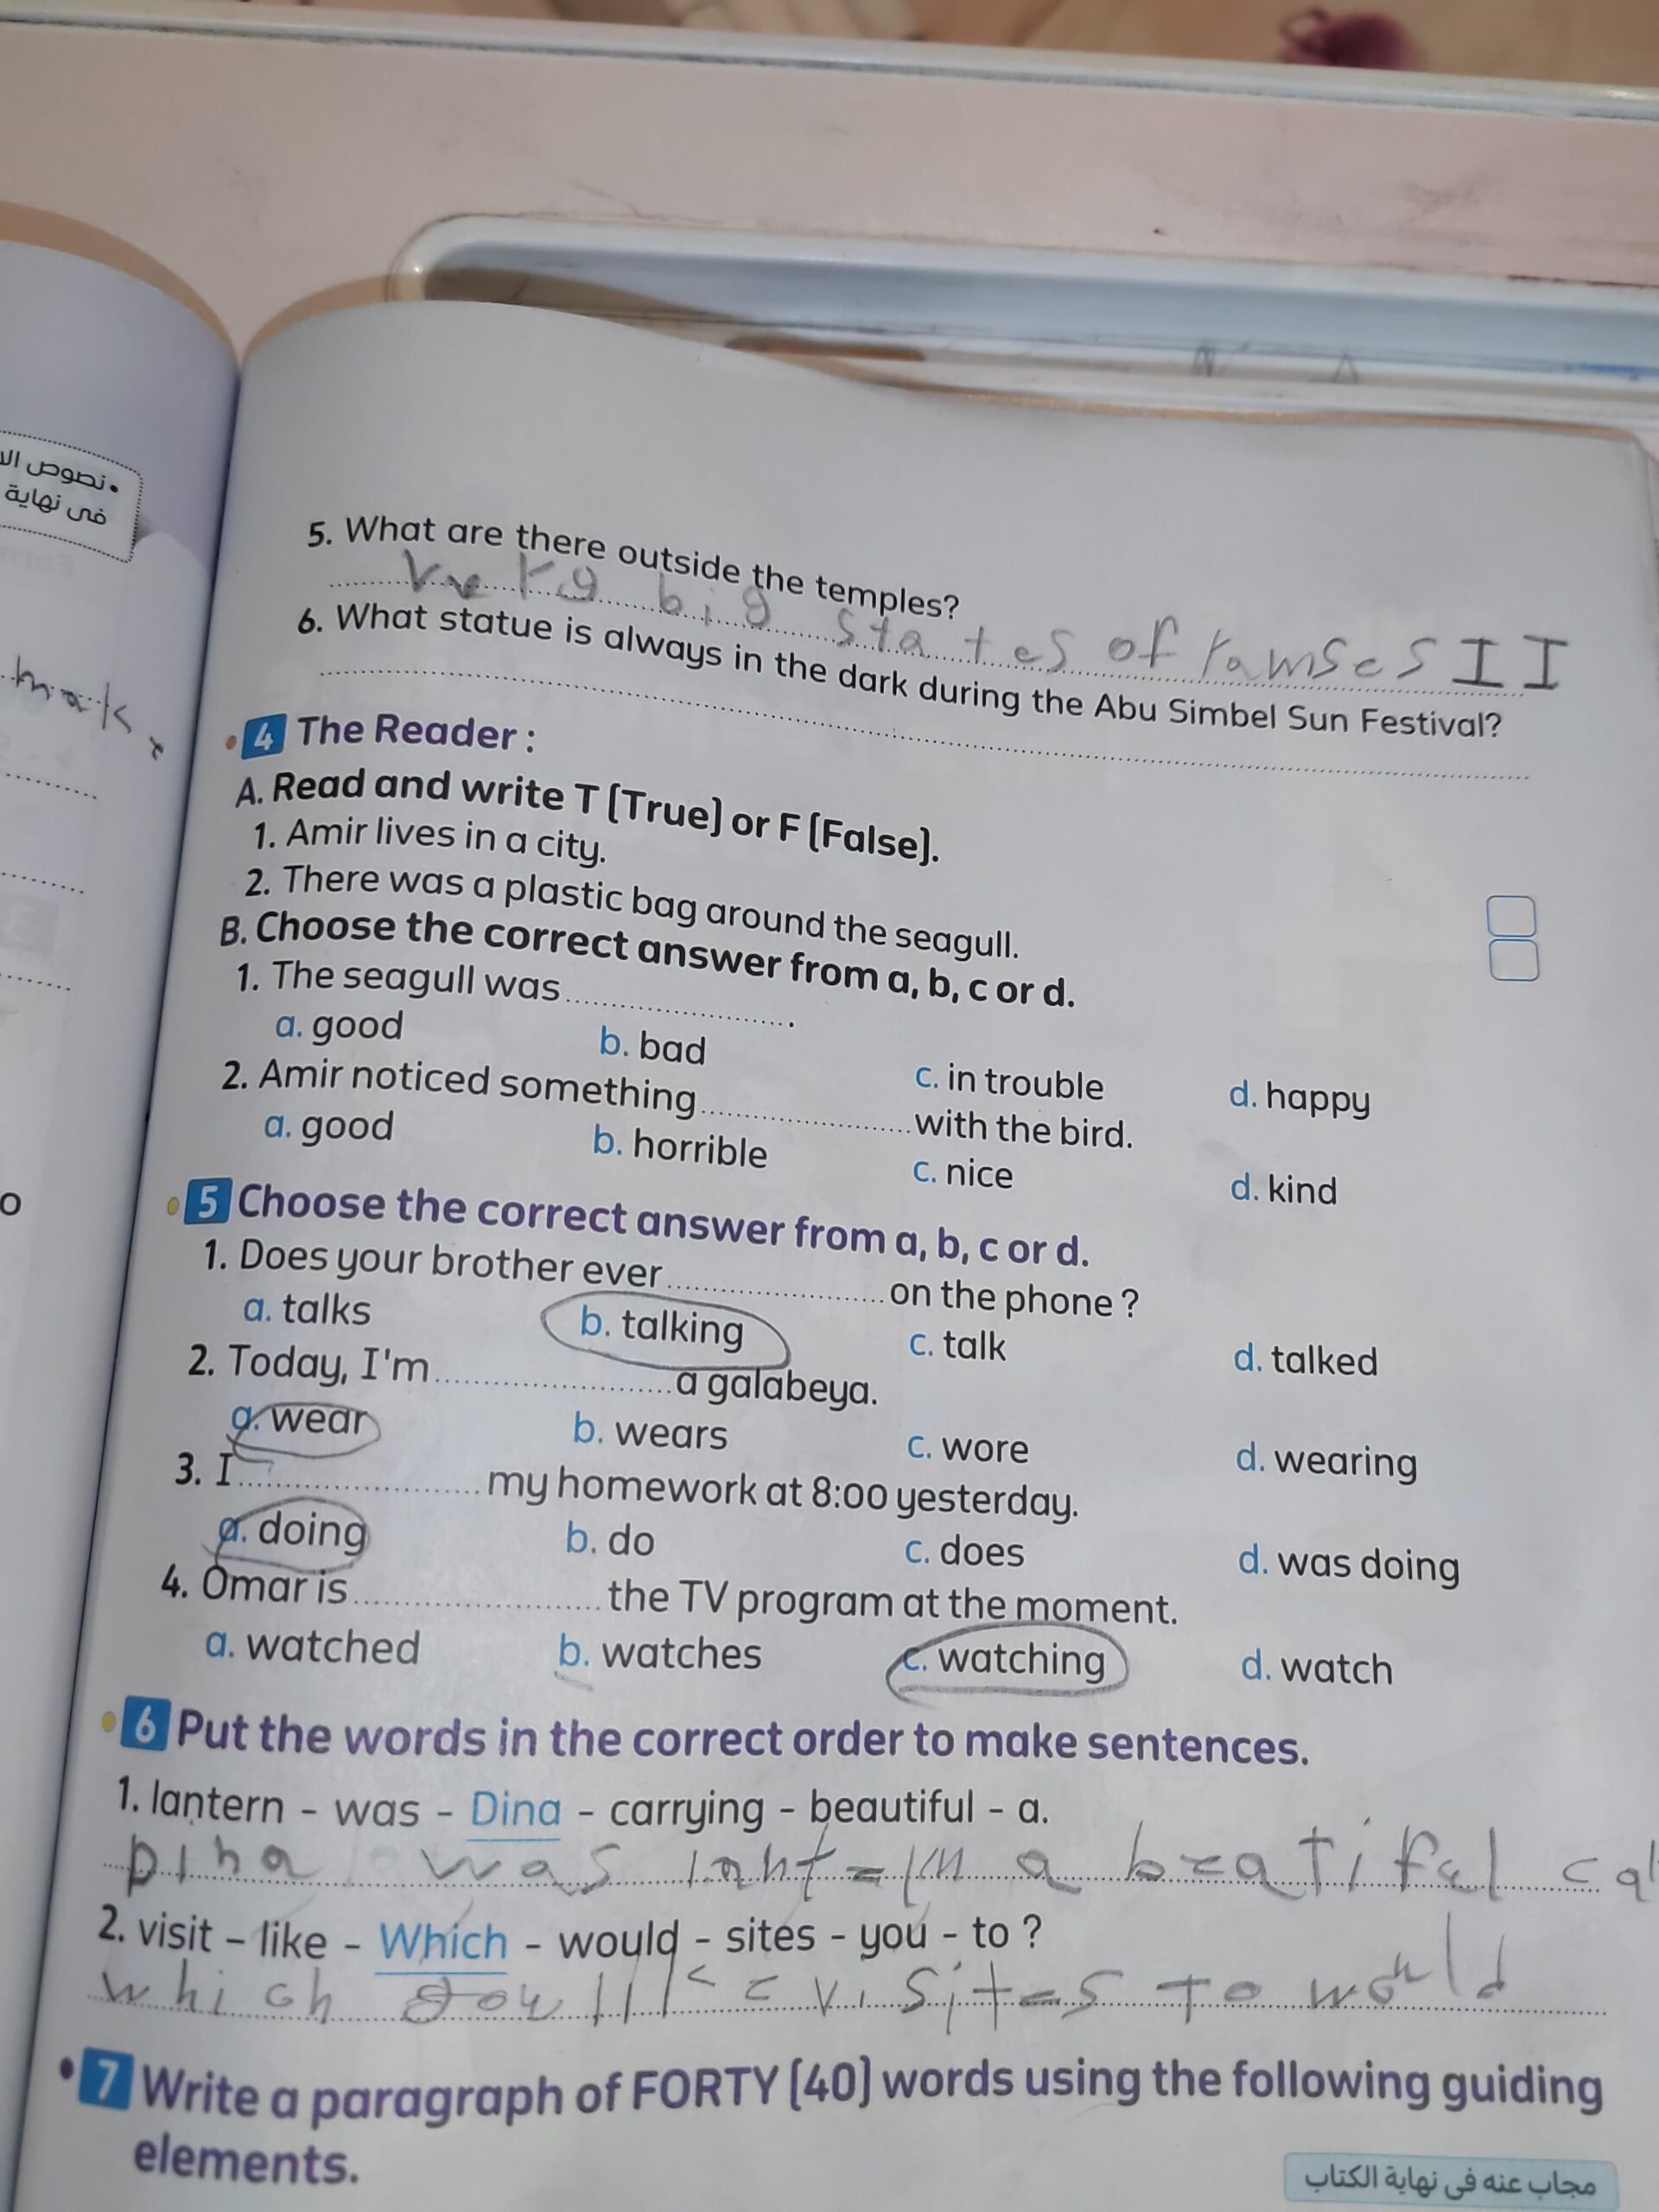 • نصوص الا
فى نهاية
5. What are there outside the temples?
very big states of ramses II
6. What statue is always in the dark during the Abu Simbel Sun Festival?
4 The Reader :
A. Read and write T (True) or F (False).
1. Amir lives in a city.
2. There was a plastic bag around the seagull.
B. Choose the correct answer from a, b, c or d.
1. The seagull was ............ .
a. good b. bad c. in trouble d. happy
2. Amir noticed something ............ with the bird.
a. good b. horrible c. nice d. kind
5 Choose the correct answer from a, b, c or d.
1. Does your brother ever ............ on the phone ?
a. talks b. talking c. talk d. talked
2. Today, I'm ............ a galabeya.
a. wear b. wears c. wore d. wearing
3. I ............ my homework at 8:00 yesterday.
a. doing b. do c. does d. was doing
4. Omar is ............ the TV program at the moment.
a. watched b. watches c. watching d. watch
6 Put the words in the correct order to make sentences.
1. lantern - was - Dina - carrying - beautiful - a.
Dina was a
2. visit – like – Which – would – sites – you – to ?
which to would
7 Write a paragraph of FORTY (40) words using the following guiding
elements.
مجاب عنه فى نهاية الكتاب